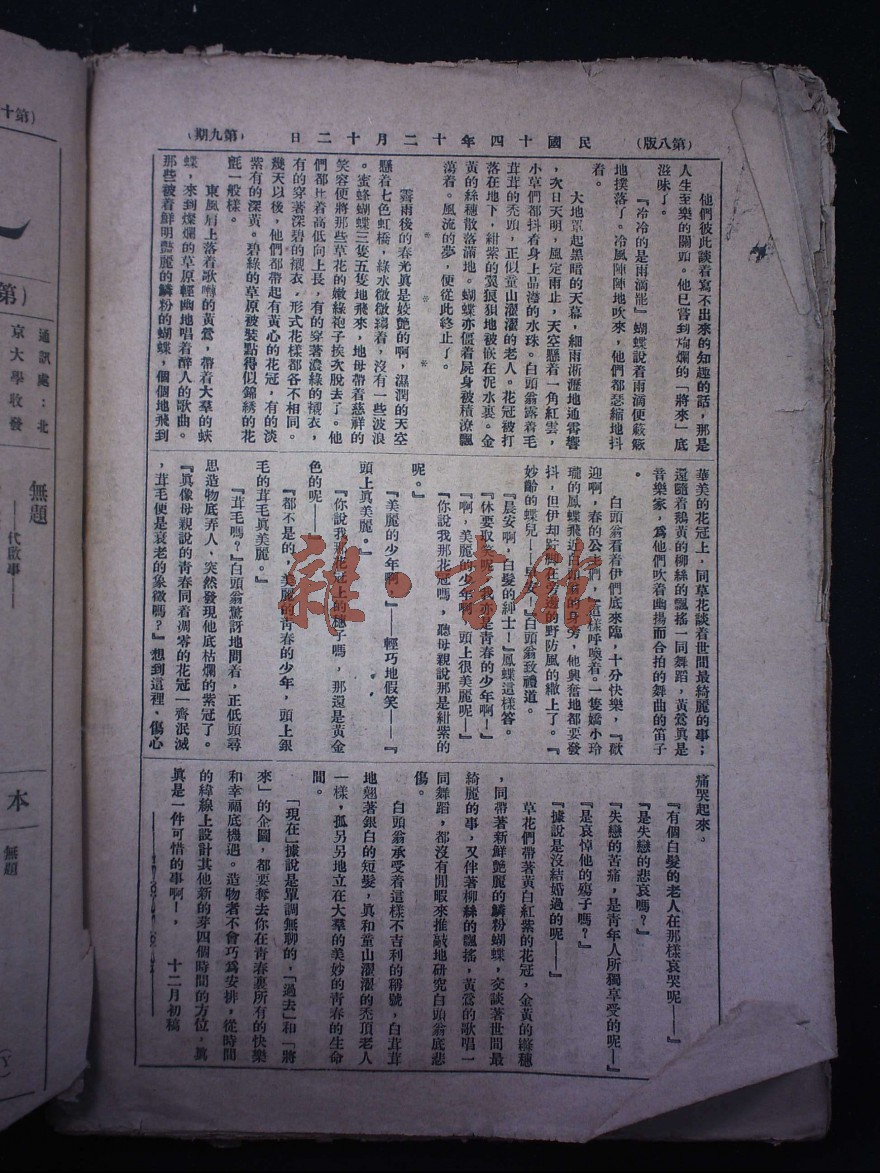 (第八版)
民國十四年十二月十二日
(第九期)
他們彼此談着寫不出來的知趣的話，那是
人生至樂的關頭。他已嘗到絢爛的「將來」底
滋味了。
『冷冷的是雨滴罷』蝴蝶說着雨滴便簌簌
地撲落了。冷風陣陣地吹來，他們都瑟縮地抖
着。
大地罩起黑暗的天幕，細雨淅瀝地通霄響
，次日天明，風定雨止，天空懸着一角紅雲，
小草們都抖着身上晶瀅的水珠。白頭翁露着毛
茸茸的禿頭，正似童山濯濯的老人。花冠被打
落在地下，紺紫的翼狼狽地被嵌在泥水裏。金
黃的絲穗散落滿地。蝴蝶亦僵着屍身被積潦飄
蕩着。風流的夢，便從此終止了。
＊　＊　＊
霽雨後的春光眞是姣艷的啊，濕潤的天空
懸着七色虹橋，綠水微微縐着，沒有一些波浪
。蜜蜂蝴蝶三隻五隻地飛來，地母帶着慈祥的
笑容便將那些草花的嫩綠袍子挨次脫去了。他
們都比着高低向上長，有的穿著濃綠的襯衣，
有的穿著深碧的襯衣，形式花樣都各不相同。
幾天以後，他們都帶起有黃心的花冠，有的淡
紫有的深黃。碧綠的草原被裝點得似錦綉的花
氈一般樣。
東風肩上落着歌囀的黃鶯，帶着大羣的蛺
蝶，來到燦爛的草原輕幽地唱着醉人的歌曲。
那些被着鮮明艷麗的鱗粉的蝴蝶，個個地飛到
華美的花冠上，同草花談着世間最綺麗的事；
還隨着鵝黃的柳絲的飄搖一同舞蹈，黃鶯眞是
音樂家，爲他們吹着幽揚而合拍的舞曲的笛子
。
白頭翁看着伊們底來臨，十分快樂，『歡
迎啊，春的公子們，』這樣呼喚着。一隻嬌小玲
瓏的鳳蝶飛近白頭翁的身旁，他興奮地都要發
抖，但伊却跕脚在旁邊的野防風的繖上了。『
妙齡的蝶兒——早安！』白頭翁致禮道。
『晨安啊，白髮的紳士！』鳳蝶這樣答。
『休要取笑呢！我亦是青春的少年啊！』
『啊，美麗的少年啊，頭上很美麗呢——』
『你說我那花冠嗎，聽母親說那是紺紫的
呢。』
『美麗的少年啊！』——輕巧地假笑——『
頭上眞美麗。』
『你說我那花冠上的穗子嗎，那還是黃金
色的呢——』
『都不是的，美麗的青春的少年，頭上銀
毛的茸毛眞美麗。』
『茸毛嗎？』白頭翁驚訝地問着，正低頭尋
思造物底弄人，突然發現他底枯爛的紫冠了。
『眞像母親說的青春同着凋零的花冠一齊泯滅
，茸毛便是衰老的象徵嗎？』想到這裡，傷心
痛哭起來。
『有個白髮的老人在那樣哀哭呢——』
『是失戀的悲哀嗎？』
『失戀的苦痛，是青年人所獨享受的呢—』
『是哀悼他的殤子嗎？』
『據說是沒結婚過的呢——』
草花們帶著黃白紅紫的花冠，金黃的繐穗
，同帶著新鮮艷麗的鱗粉蝴蝶，交談著世間最
綺麗的事，又伴著柳絲的飄搖，黃鶯的歌唱一
同舞蹈，都沒有閒暇來推敲地研究白頭翁底悲
傷。
白頭翁承受着這樣不吉利的稱號，白茸茸
地翹著銀白的短髮，眞和童山濯濯的禿頂老人
一樣，孤另另地立在大羣的美妙的青春的生命
間。
「現在」據說是單調無聊的，「過去」和「將
來」的企圖，都要奪去你在青春裏所有的快樂
和幸福底機遇。造物者不會巧爲安排，從時間
的緯線上設計其他新的穿四個時間的方位，眞
眞是一件可惜的事啊！，　十二月初稿
(第十
第
通訊處：北
京大學收發
無題
——代啟事——
本
無題
雜·書館